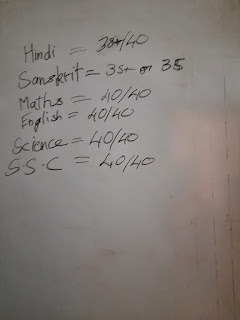 Hindi = 38+/40
Sanskrit = 35+ or 35
Maths = 40/40
English = 40/40
Science = 40/40
S.S.C = 40/40